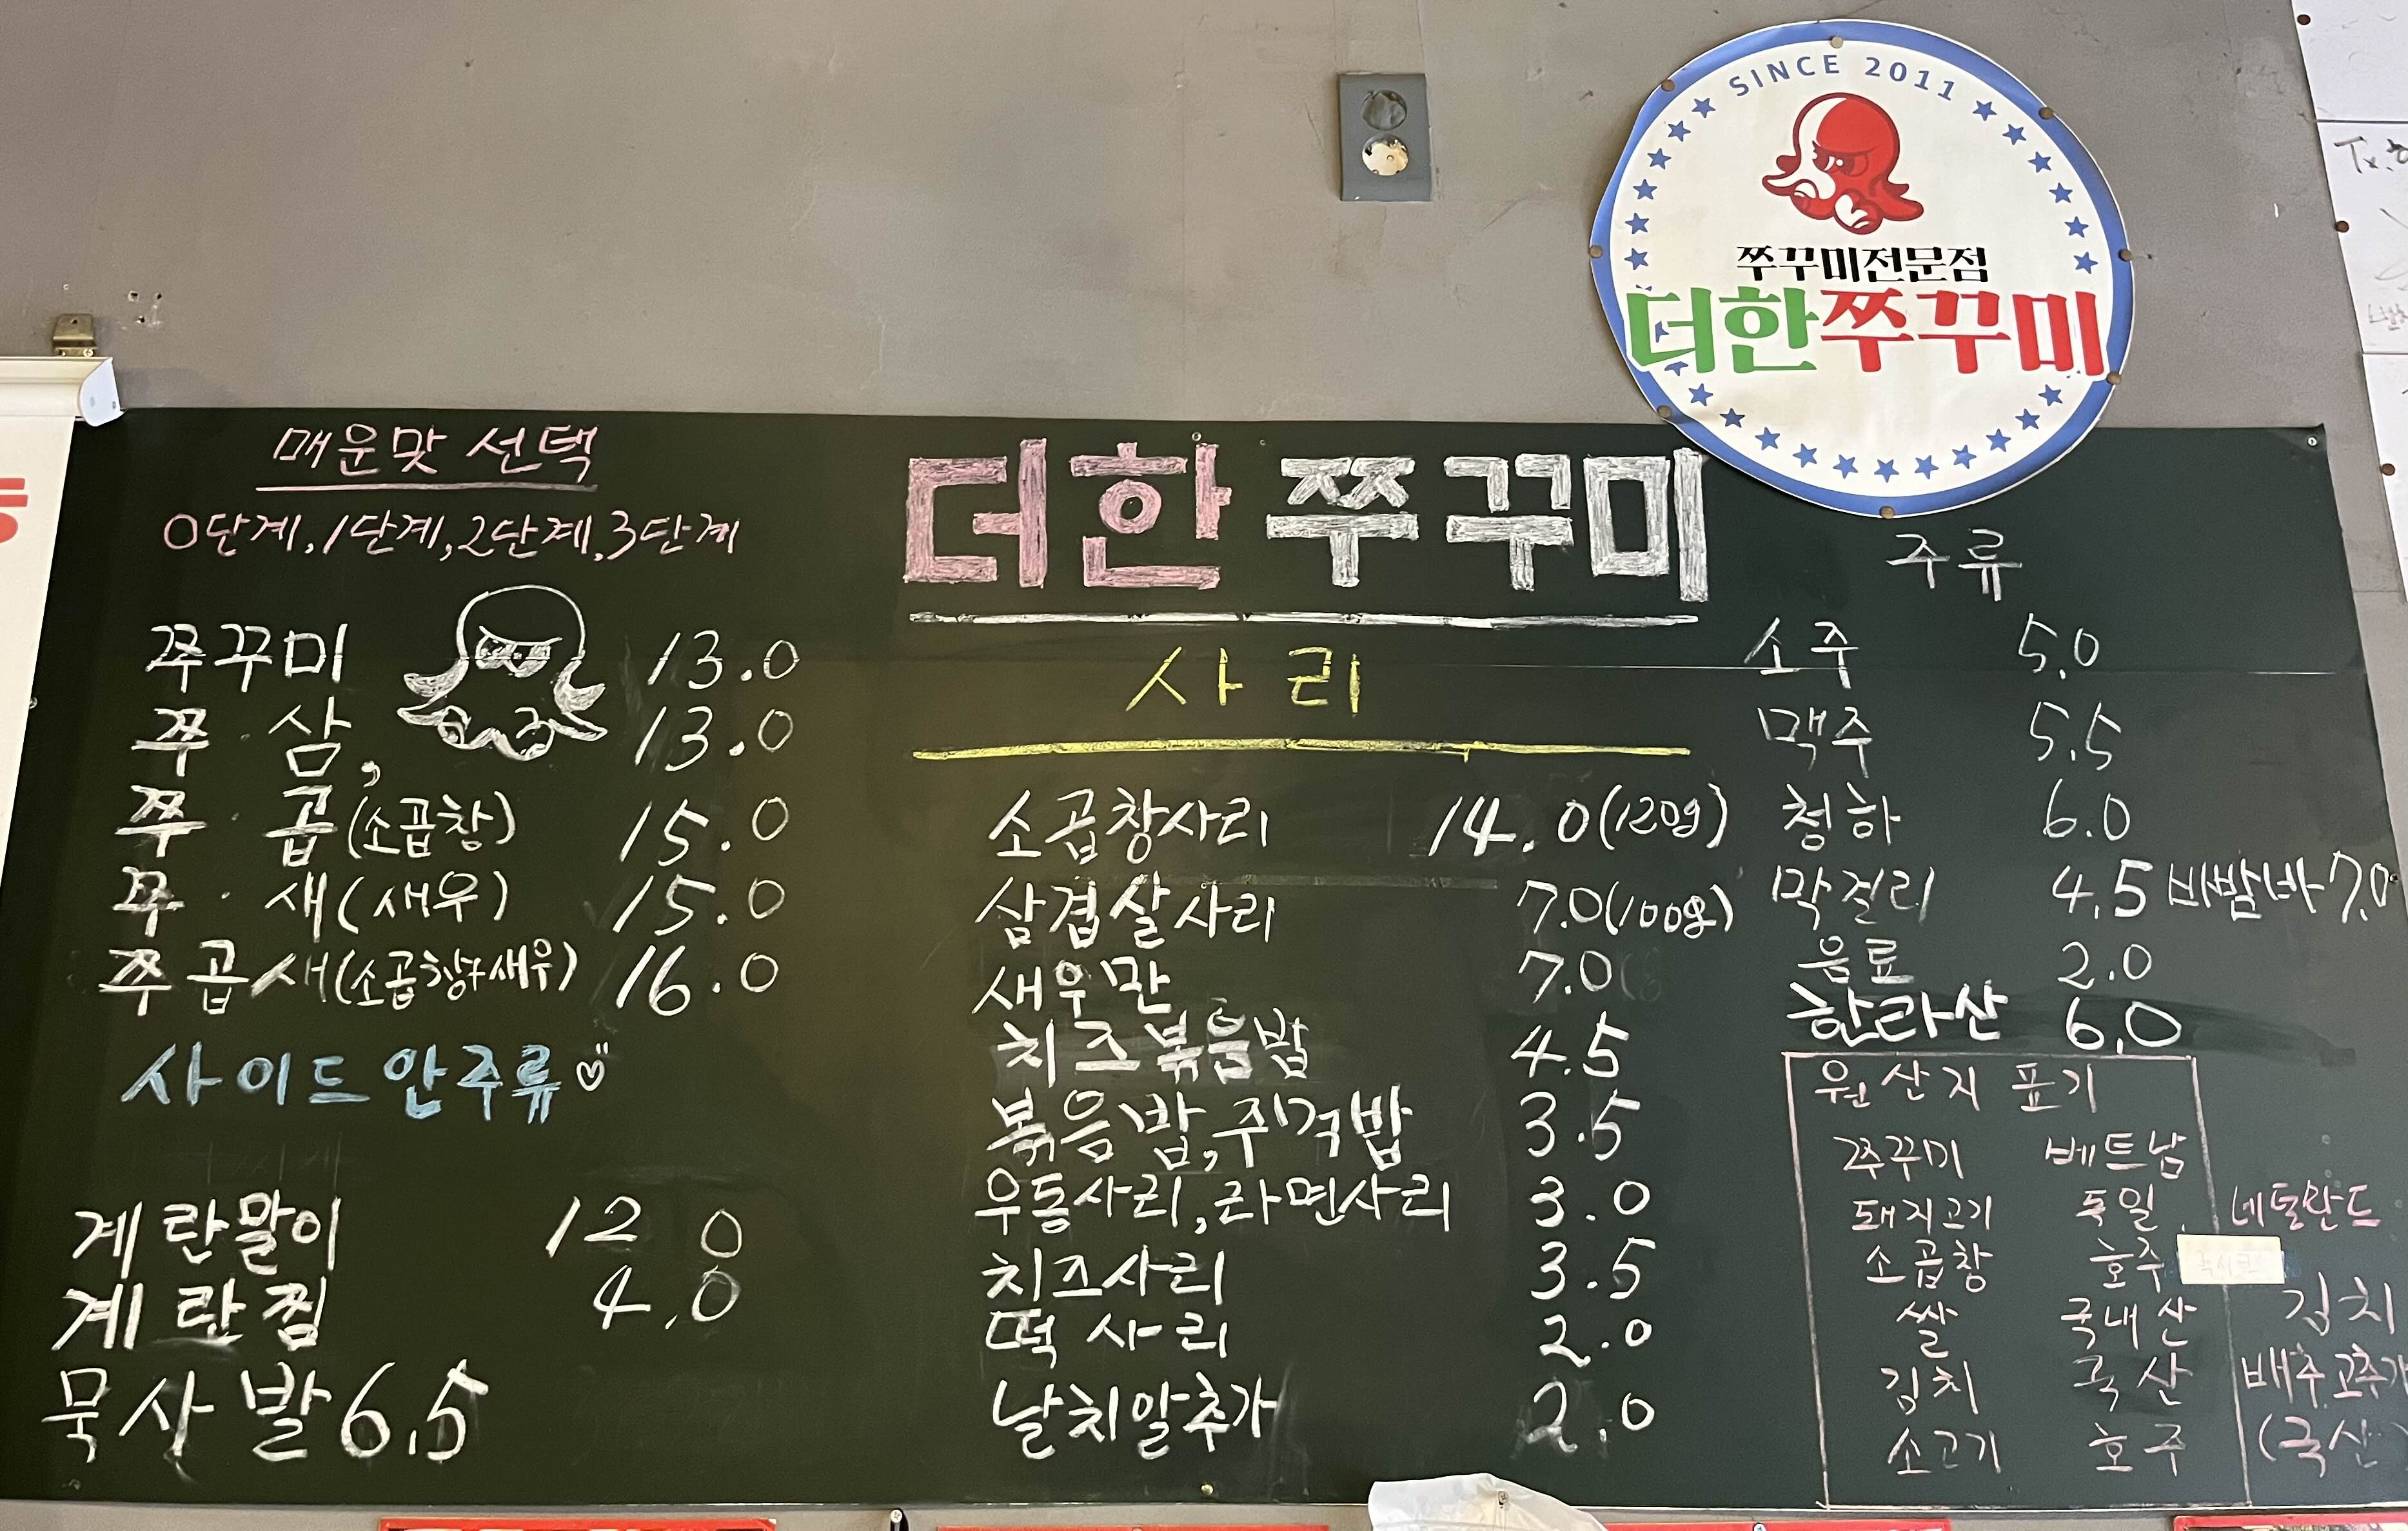 SINCE 2011
쭈꾸미전문점
더한쭈꾸미
매운맛 선택
0단계, 1단계, 2단계, 3단계
쭈꾸미 13.0
쭈·삼, 13.0
쭈·곱(소곱창) 15.0
쭈·새(새우) 15.0
쭈곱새(소곱창+새우) 16.0
사이드 안주류
계란말이 12 0
계란찜 4.0
묵사발 6.5
더한쭈꾸미
사리
소곱창사리 14.0(120g)
삼겹살사리 7.0(100g)
새우만 7.0
치즈볶음밥 4.5
볶음밥, 주먹밥 3.5
우동사리, 라면사리 3.0
치즈사리 3.5
떡사리 2.0
날치알추가 2.0
주류
소주 5.0
맥주 5.5
청하 6.0
막걸리 4.5 바밤바 7.0
음료 2.0
한라산 6.0
원산지 표기
쭈꾸미 베트남
돼지고기 독일, 네덜란드
소곱창 호주
쌀 국내산
김치 국산
소고기 호주
김치
배추 고추가
(국산